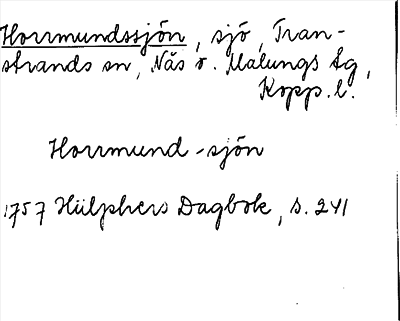 Horrmundssjön, sjö, Tran-
strands sn, Nås o. Malungs tg,
Kopp. l.
Horrmund-sjön
1757 Hülphers Dagbok, s. 241